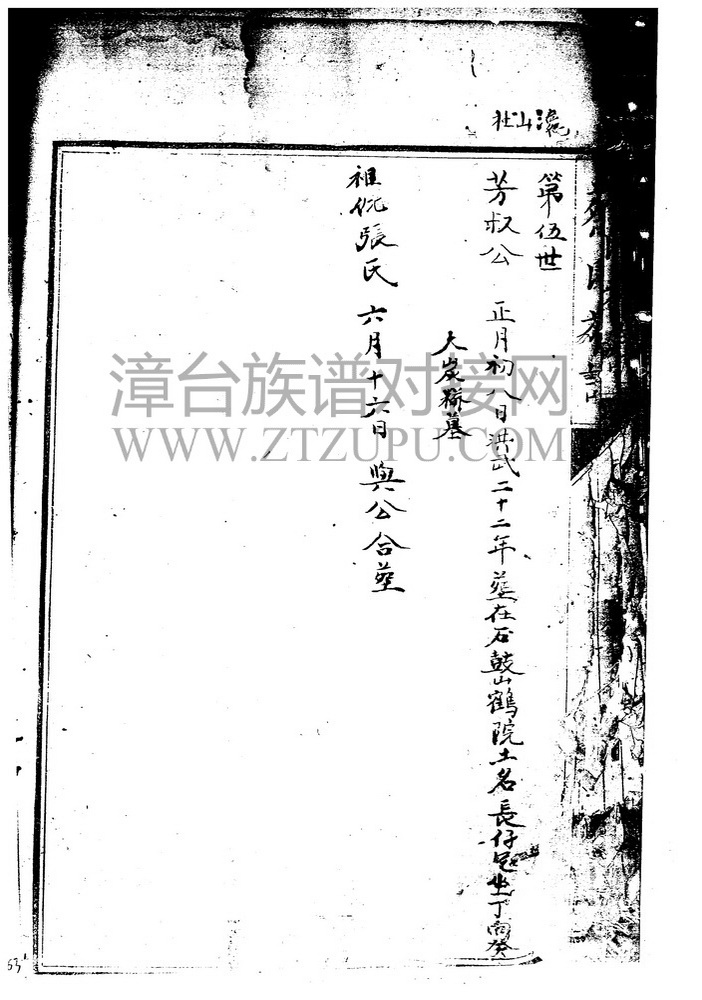 社山
第伍世
芳叔公 正月初八日洪武二十二年塟在石鼓山鶴院土名長仔坐丁向癸
大嵗墓
祖妣張氏 六月十六日 與公合塟
漳台族谱对接网
WWW.ZTZUPU.COM